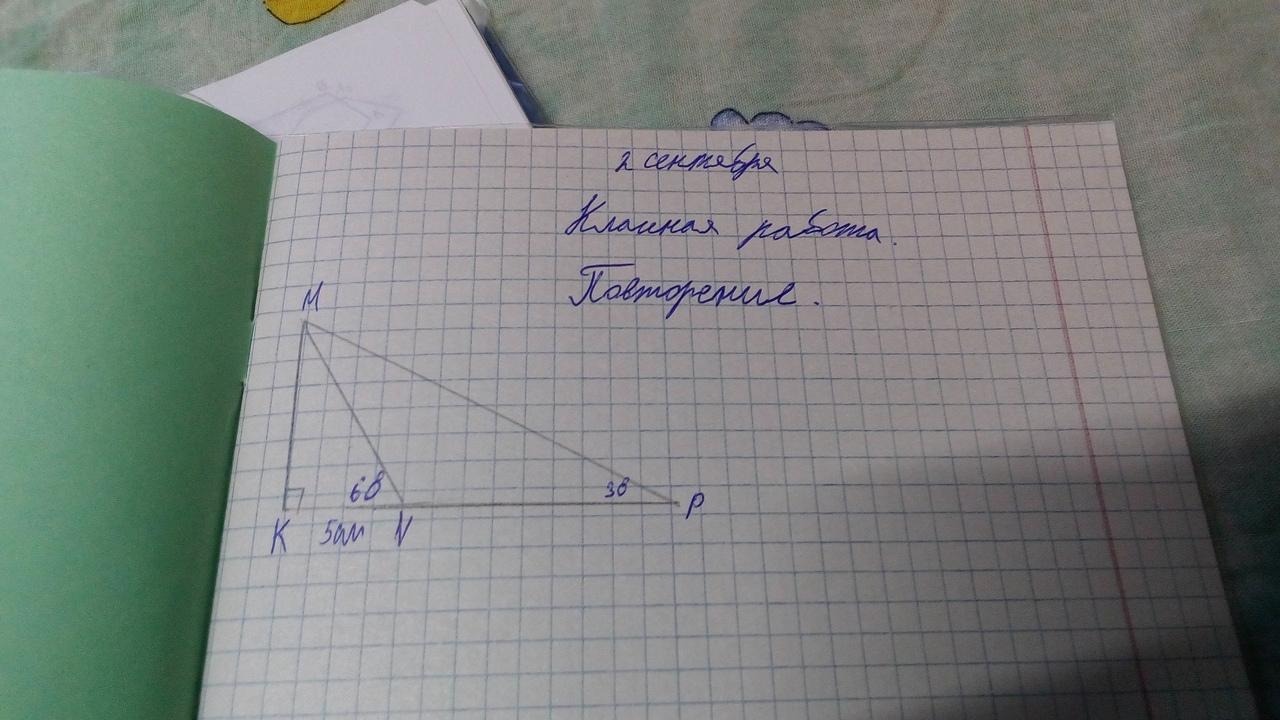 2 сентября
Классная работа.
Повторение.
M
60°
30°
K 5см N
P